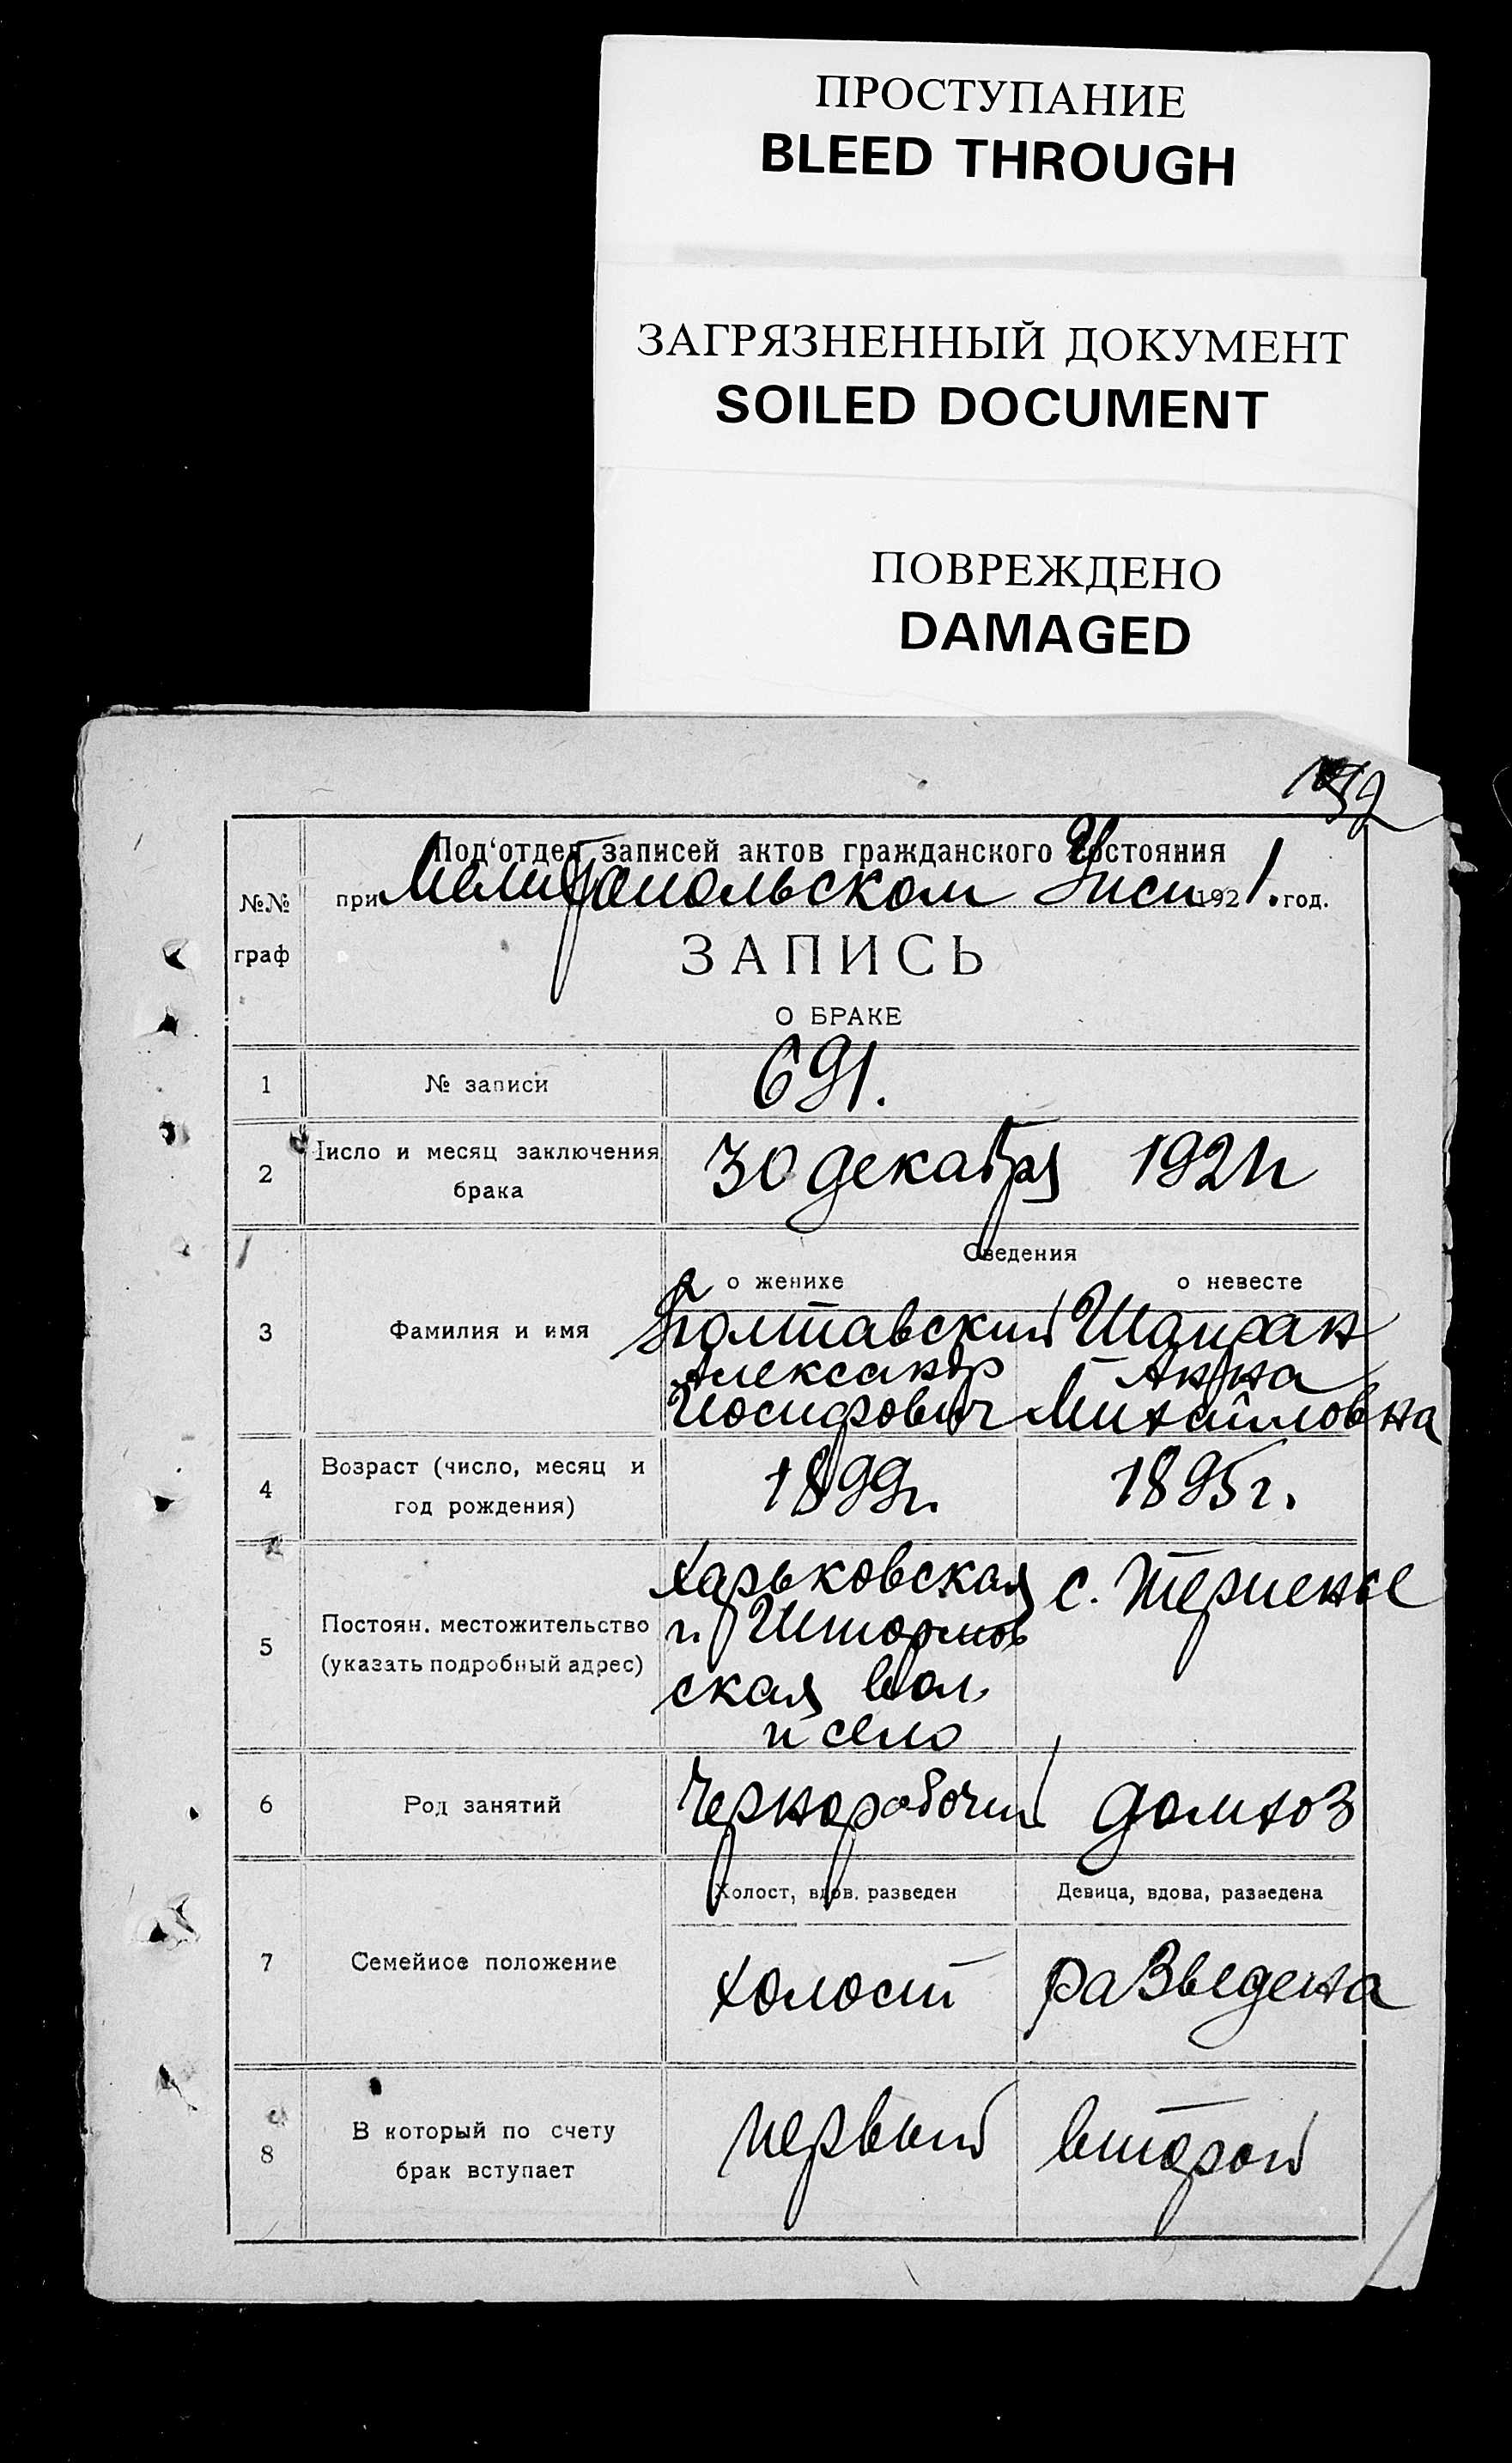 ПРОСТУПАНИЕ
BLEED THROUGH
ЗАГРЯЗНЕННЫЙ ДОКУМЕНТ
SOILED DOCUMENT
ПОВРЕЖДЕНО
DAMAGED
№№ граф
Под'отдел записей актов гражданского состояния
при Мелитопольском Уиси 1921. год.
ЗАПИСЬ
О БРАКЕ
1 № записи 691.
2 Число и месяц заключения брака 30 декабря 1921г
Сведения
о женихе о невесте
3 Фамилия и имя
Полтавский
Александр Анна
Иосифович Михайловна
4 Возраст (число, месяц и год рождения) 1899г. 1895г.
5 Постоян. местожительство (указать подробный адрес)
Харьковская с. Терпенье
г. Штормов
ская вол.
и село
6 Род занятий Чернорабочий домхоз
Холост, вдов. разведен Девица, вдова, разведена
7 Семейное положение холост разведена
8 В который по счету брак вступает первый второй